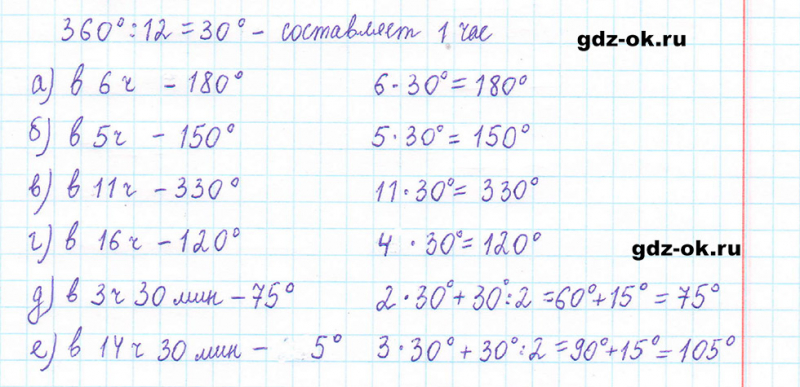 360° : 12 = 30° - составляет 1 час
gdz-ok.ru
а) в 6 ч - 180° 6 · 30° = 180°
б) в 5 ч - 150° 5 · 30° = 150°
в) в 11 ч - 330° 11 · 30° = 330°
г) в 16 ч - 120° 4 · 30° = 120°
gdz-ok.ru
д) в 3 ч 30 мин - 75° 2 · 30° + 30° : 2 = 60° + 15° = 75°
е) в 14 ч 30 мин - 5° 3 · 30° + 30° : 2 = 90° + 15° = 105°